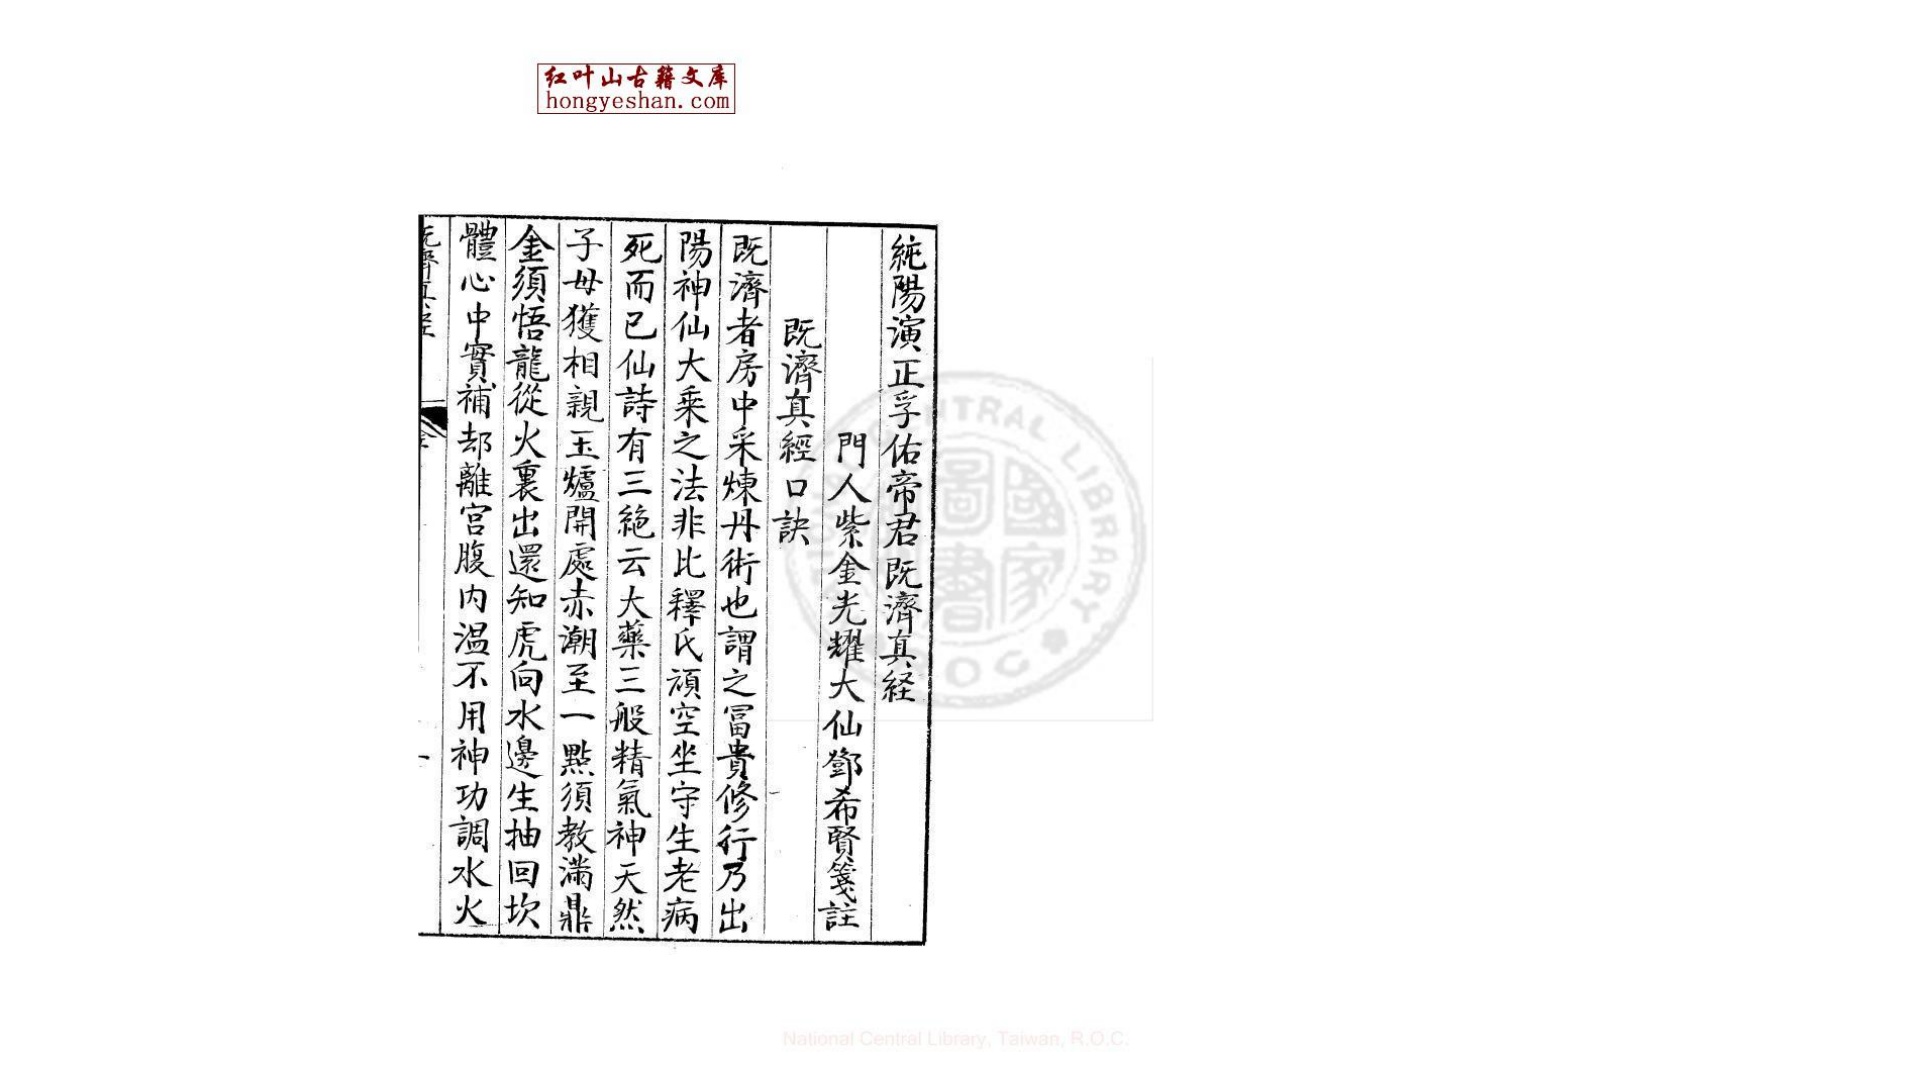 红叶山古籍文库
hongyeshan.com
純陽演正孚佑帝君既濟真経
門人紫金光耀大仙鄧希賢箋註
既濟真經口訣
既濟者房中采煉丹術也謂之冨貴修行乃出
陽神仙大乘之法非比釋氏頑空坐守生老病
死而已仙詩有三絶云大藥三般精氣神天然
子母獲相親玉爐開處赤潮至一點須教滿鼎
金須悟龍從火裏出還知虎向水邊生抽回坎
體心中實補却離宫腹内温不用神功調水火
國家圖書
CENTRAL LIBRARY
ROC
National Central Library, Taiwan, R.O.C.